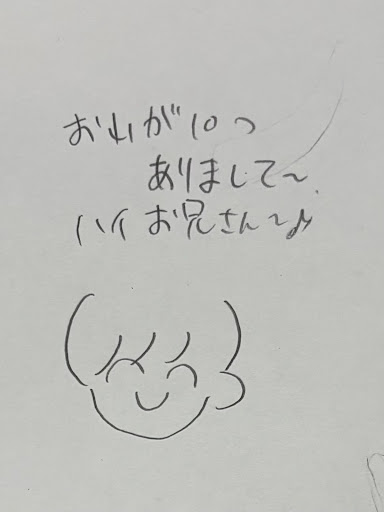 お山が10つ
ありまして〜
ハイ お兄さん〜♪